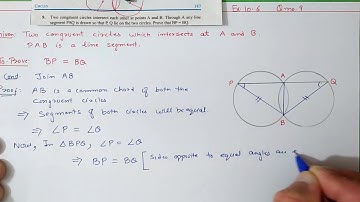 Circles
9. Two congruent circles intersect each other at points A and B. Through A any line
segment PAQ is drawn so that P, Q lie on the two circles. Prove that BP = BQ.
Ex 10.6 Q no. 9
Given: Two congruent circles which intersects at A and B.
PAB is a line segment.
To Prove: BP = BQ
Const: Join AB
Proof: AB is a common chord of both the
Congruent circles
⇒ Segments of both circles will be equal.
⇒ ∠P = ∠Q
Now, In △BPQ, ∠P = ∠Q
⇒ BP = BQ [Sides opposite to equal angles are
P
A
Q
B